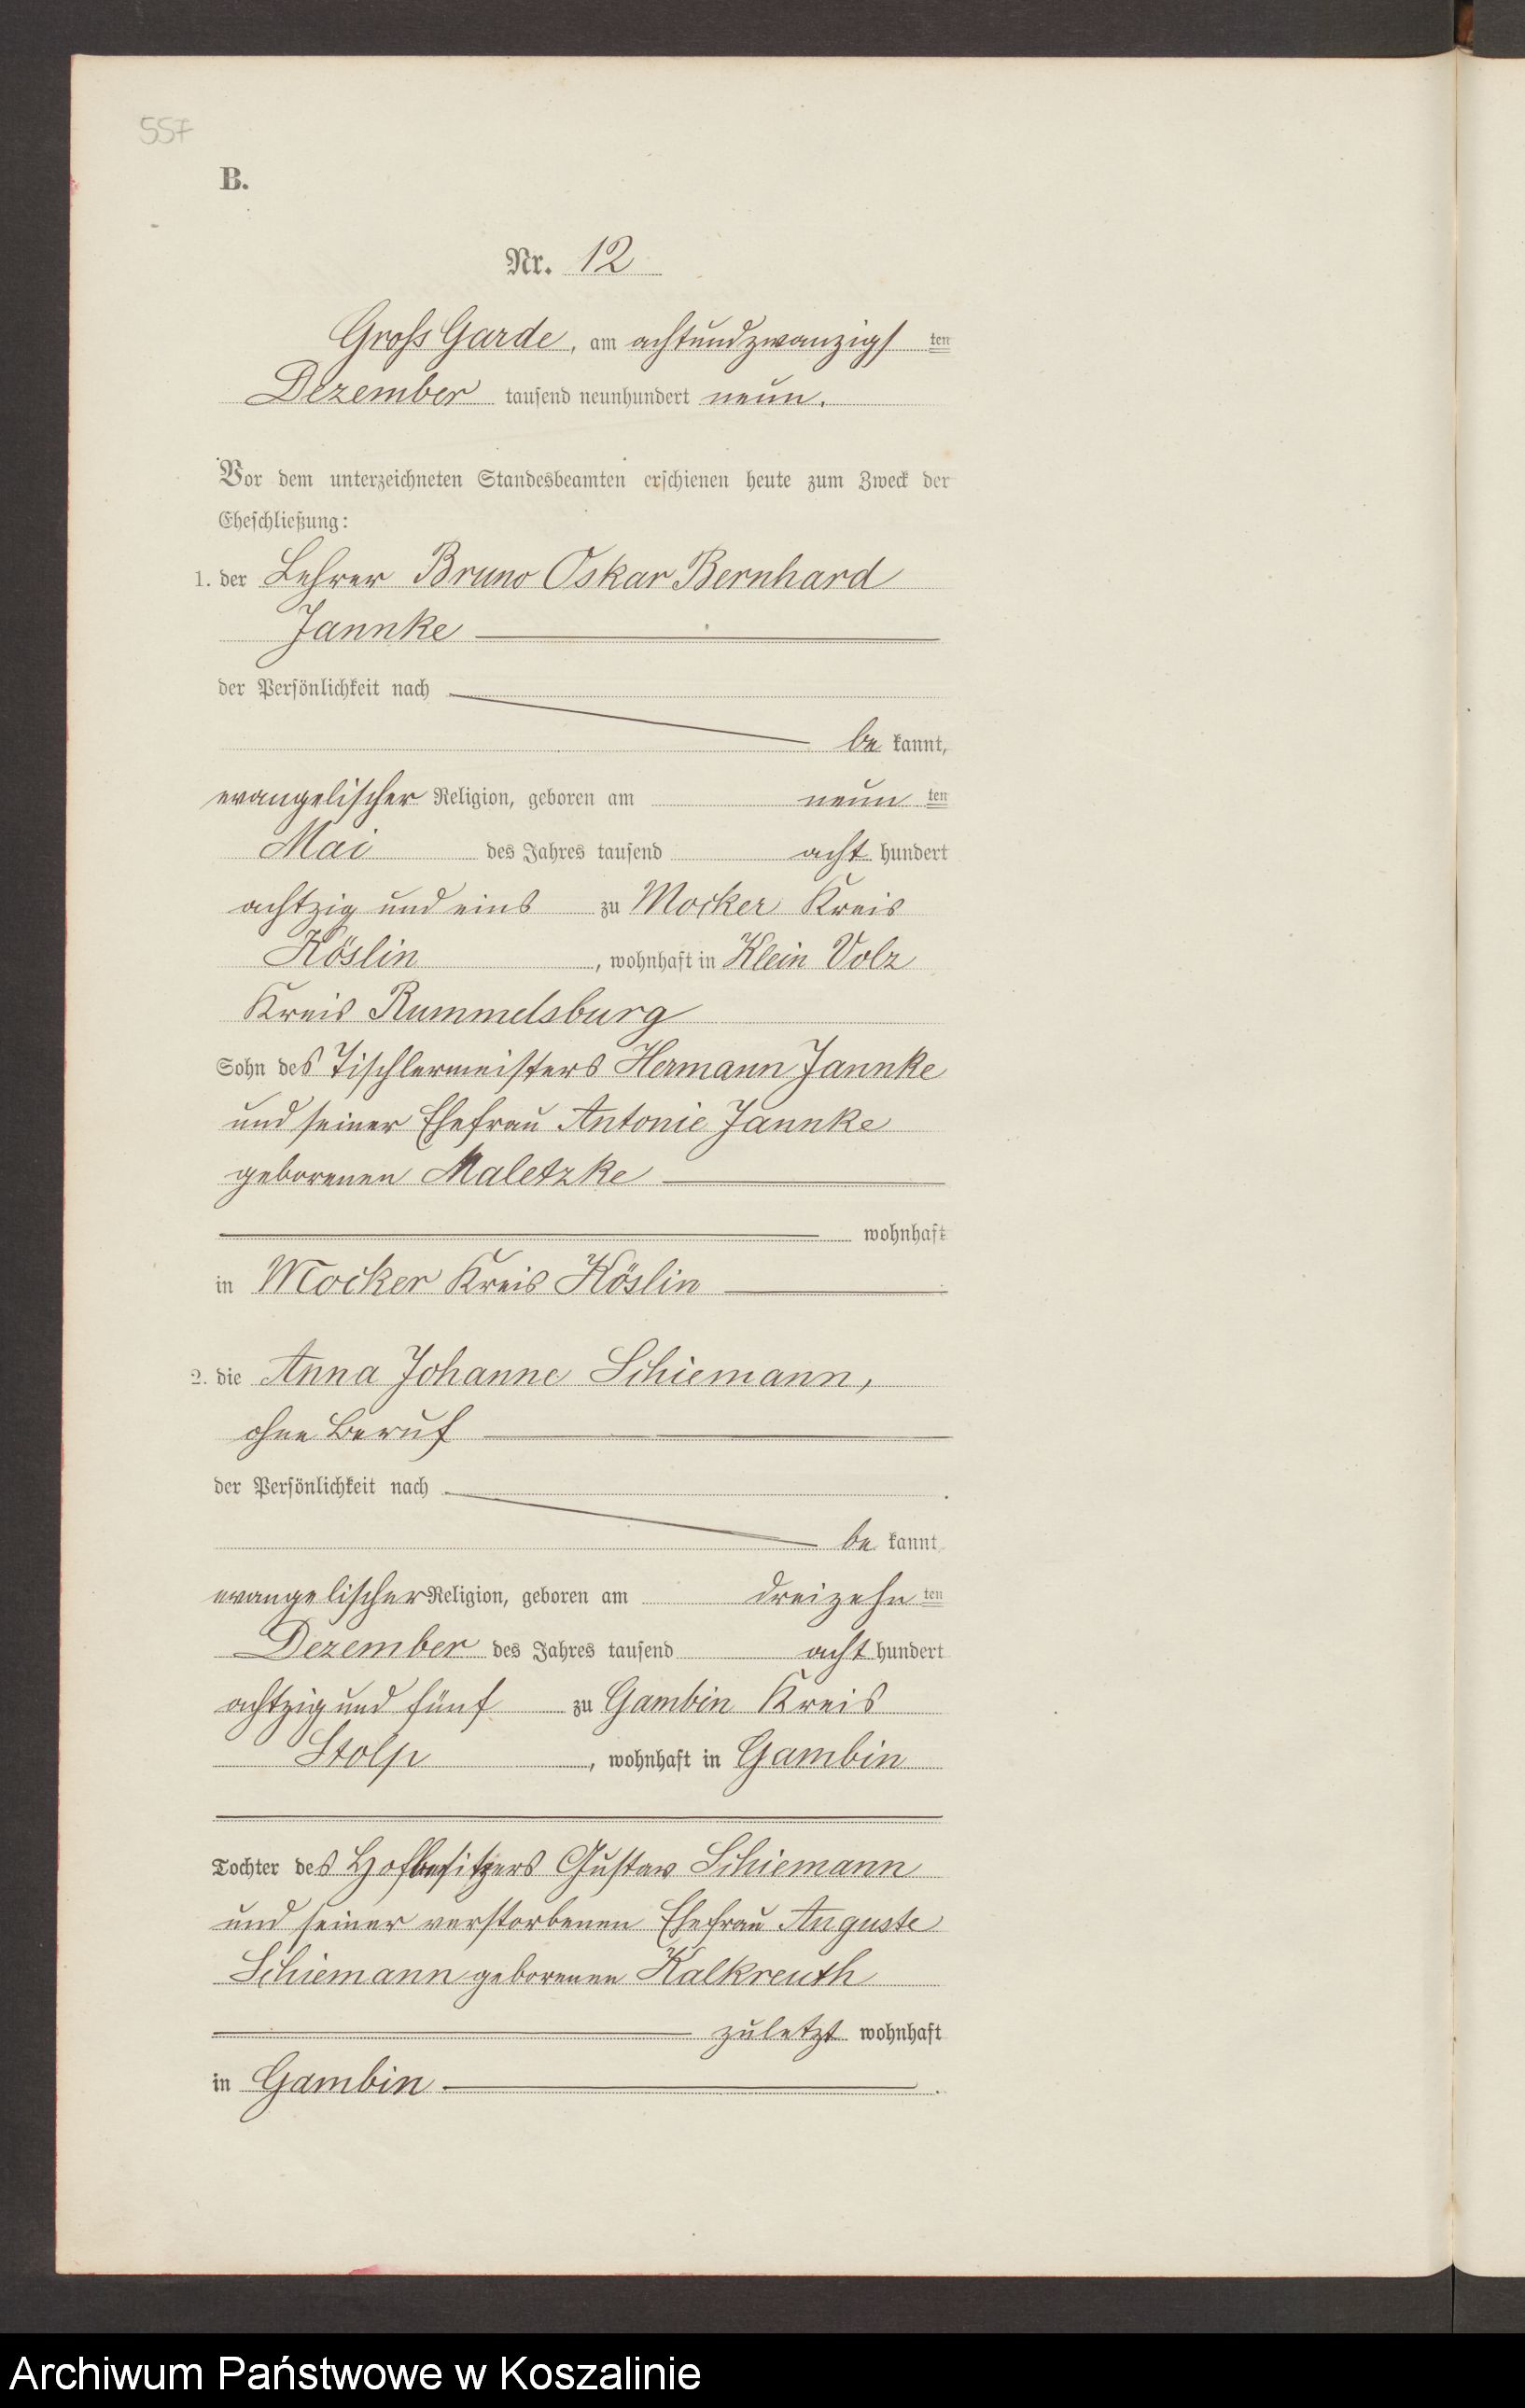 557
B.
Nr. 12
Gross Garde, am achtundzwanzigsten
Dezember tausend neunhundert neun.
Vor dem unterzeichneten Standesbeamten erschienen heute zum Zweck der
Eheschließung:
1. der Lehrer Bruno Oskar Bernhard
Jannke
der Persönlichkeit nach
be kannt,
evangelischer Religion, geboren am neun ten
Mai des Jahres tausend acht hundert
achtzig und eins zu Mocker Kreis
Köslin, wohnhaft in Klein Volz
Kreis Rummelsburg
Sohn des Tischlermeisters Hermann Jannke
und seiner Ehefrau Antonie Jannke
geborenen Maletzke
wohnhaft
in Mocker Kreis Köslin
2. die Anna Johanne Schiemann,
ohne Beruf
der Persönlichkeit nach
be kannt,
evangelischer Religion, geboren am dreizehn ten
Dezember des Jahres tausend acht hundert
achtzig und fünf zu Gambin Kreis
Stolp, wohnhaft in Gambin
Tochter des Hofbesitzers Gustav Schiemann
und seiner verstorbenen Ehefrau Auguste
Schiemann geborenen Kalkreuth
zuletzt wohnhaft
in Gambin.
Archiwum Państwowe w Koszalinie